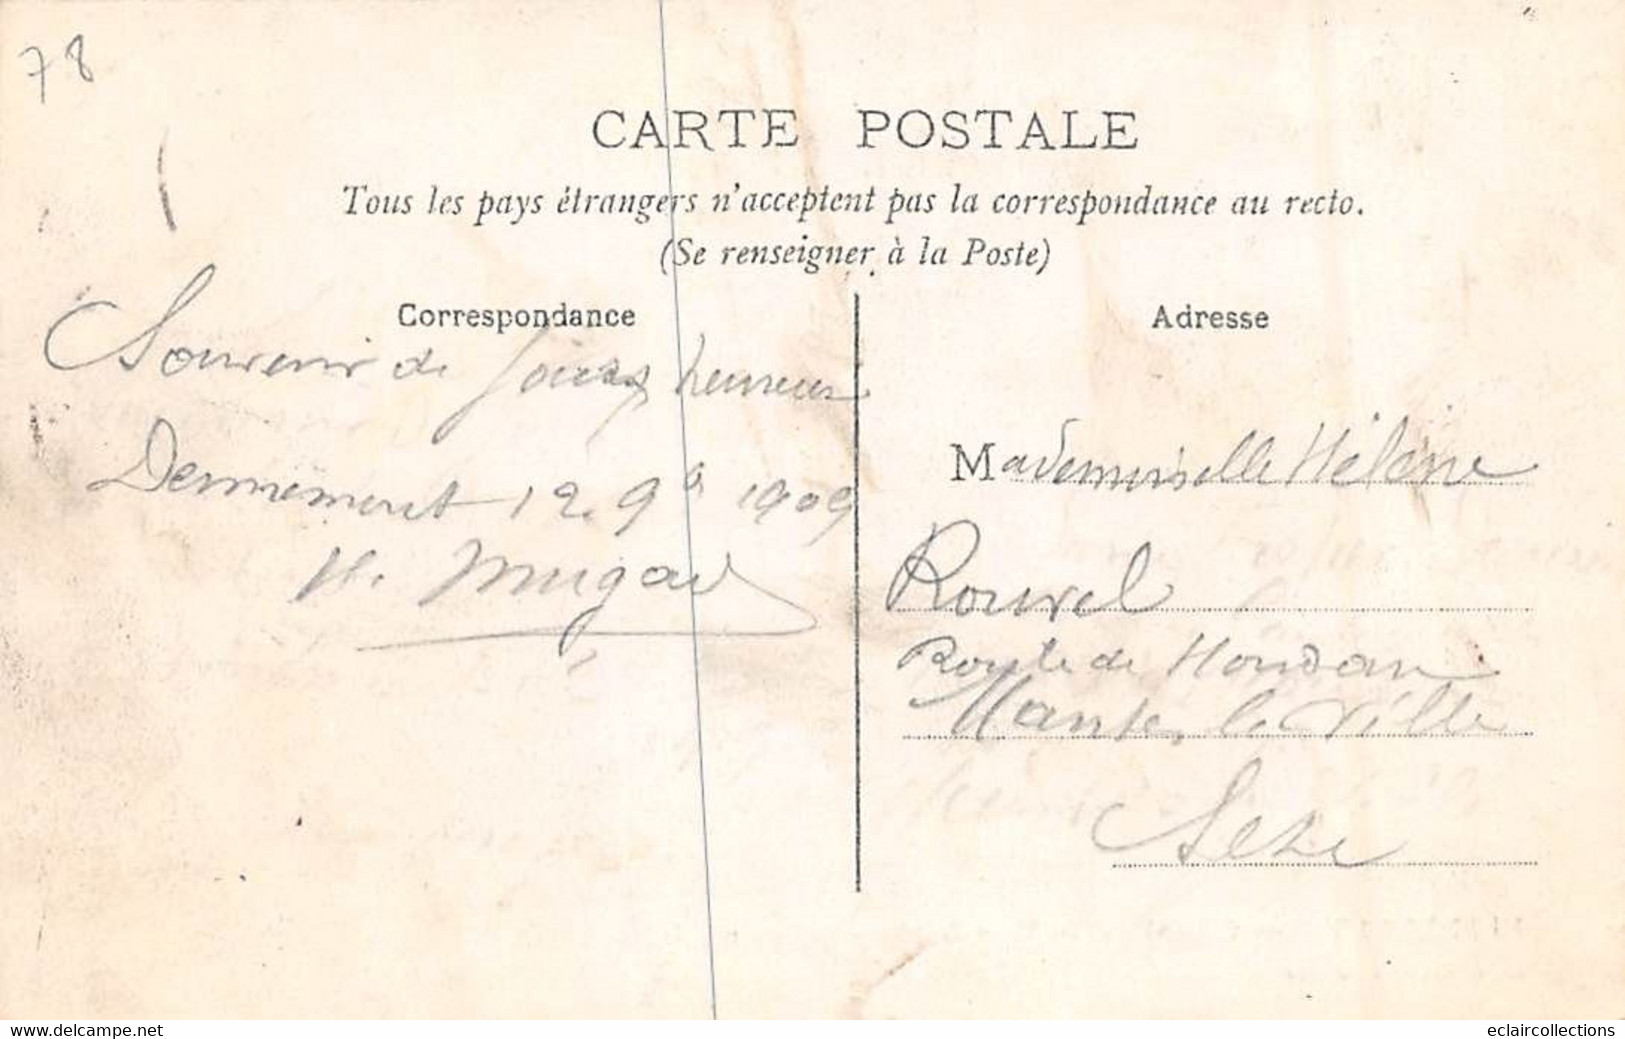 78
CARTE POSTALE
Tous les pays étrangers n'acceptent pas la correspondance au recto.
(Se renseigner à la Poste)
Correspondance
Souvenir de jours heureux
Dennemont 12 9b 1909
H.
Adresse
Mademoiselle Hélène
Rouvel
Route de Houdan
Mantes la Ville
www.delcampe.net
eclaircollections